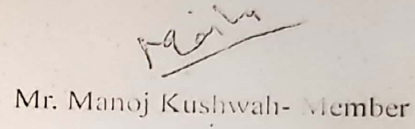 Mr. Manoj Kushwah- Member